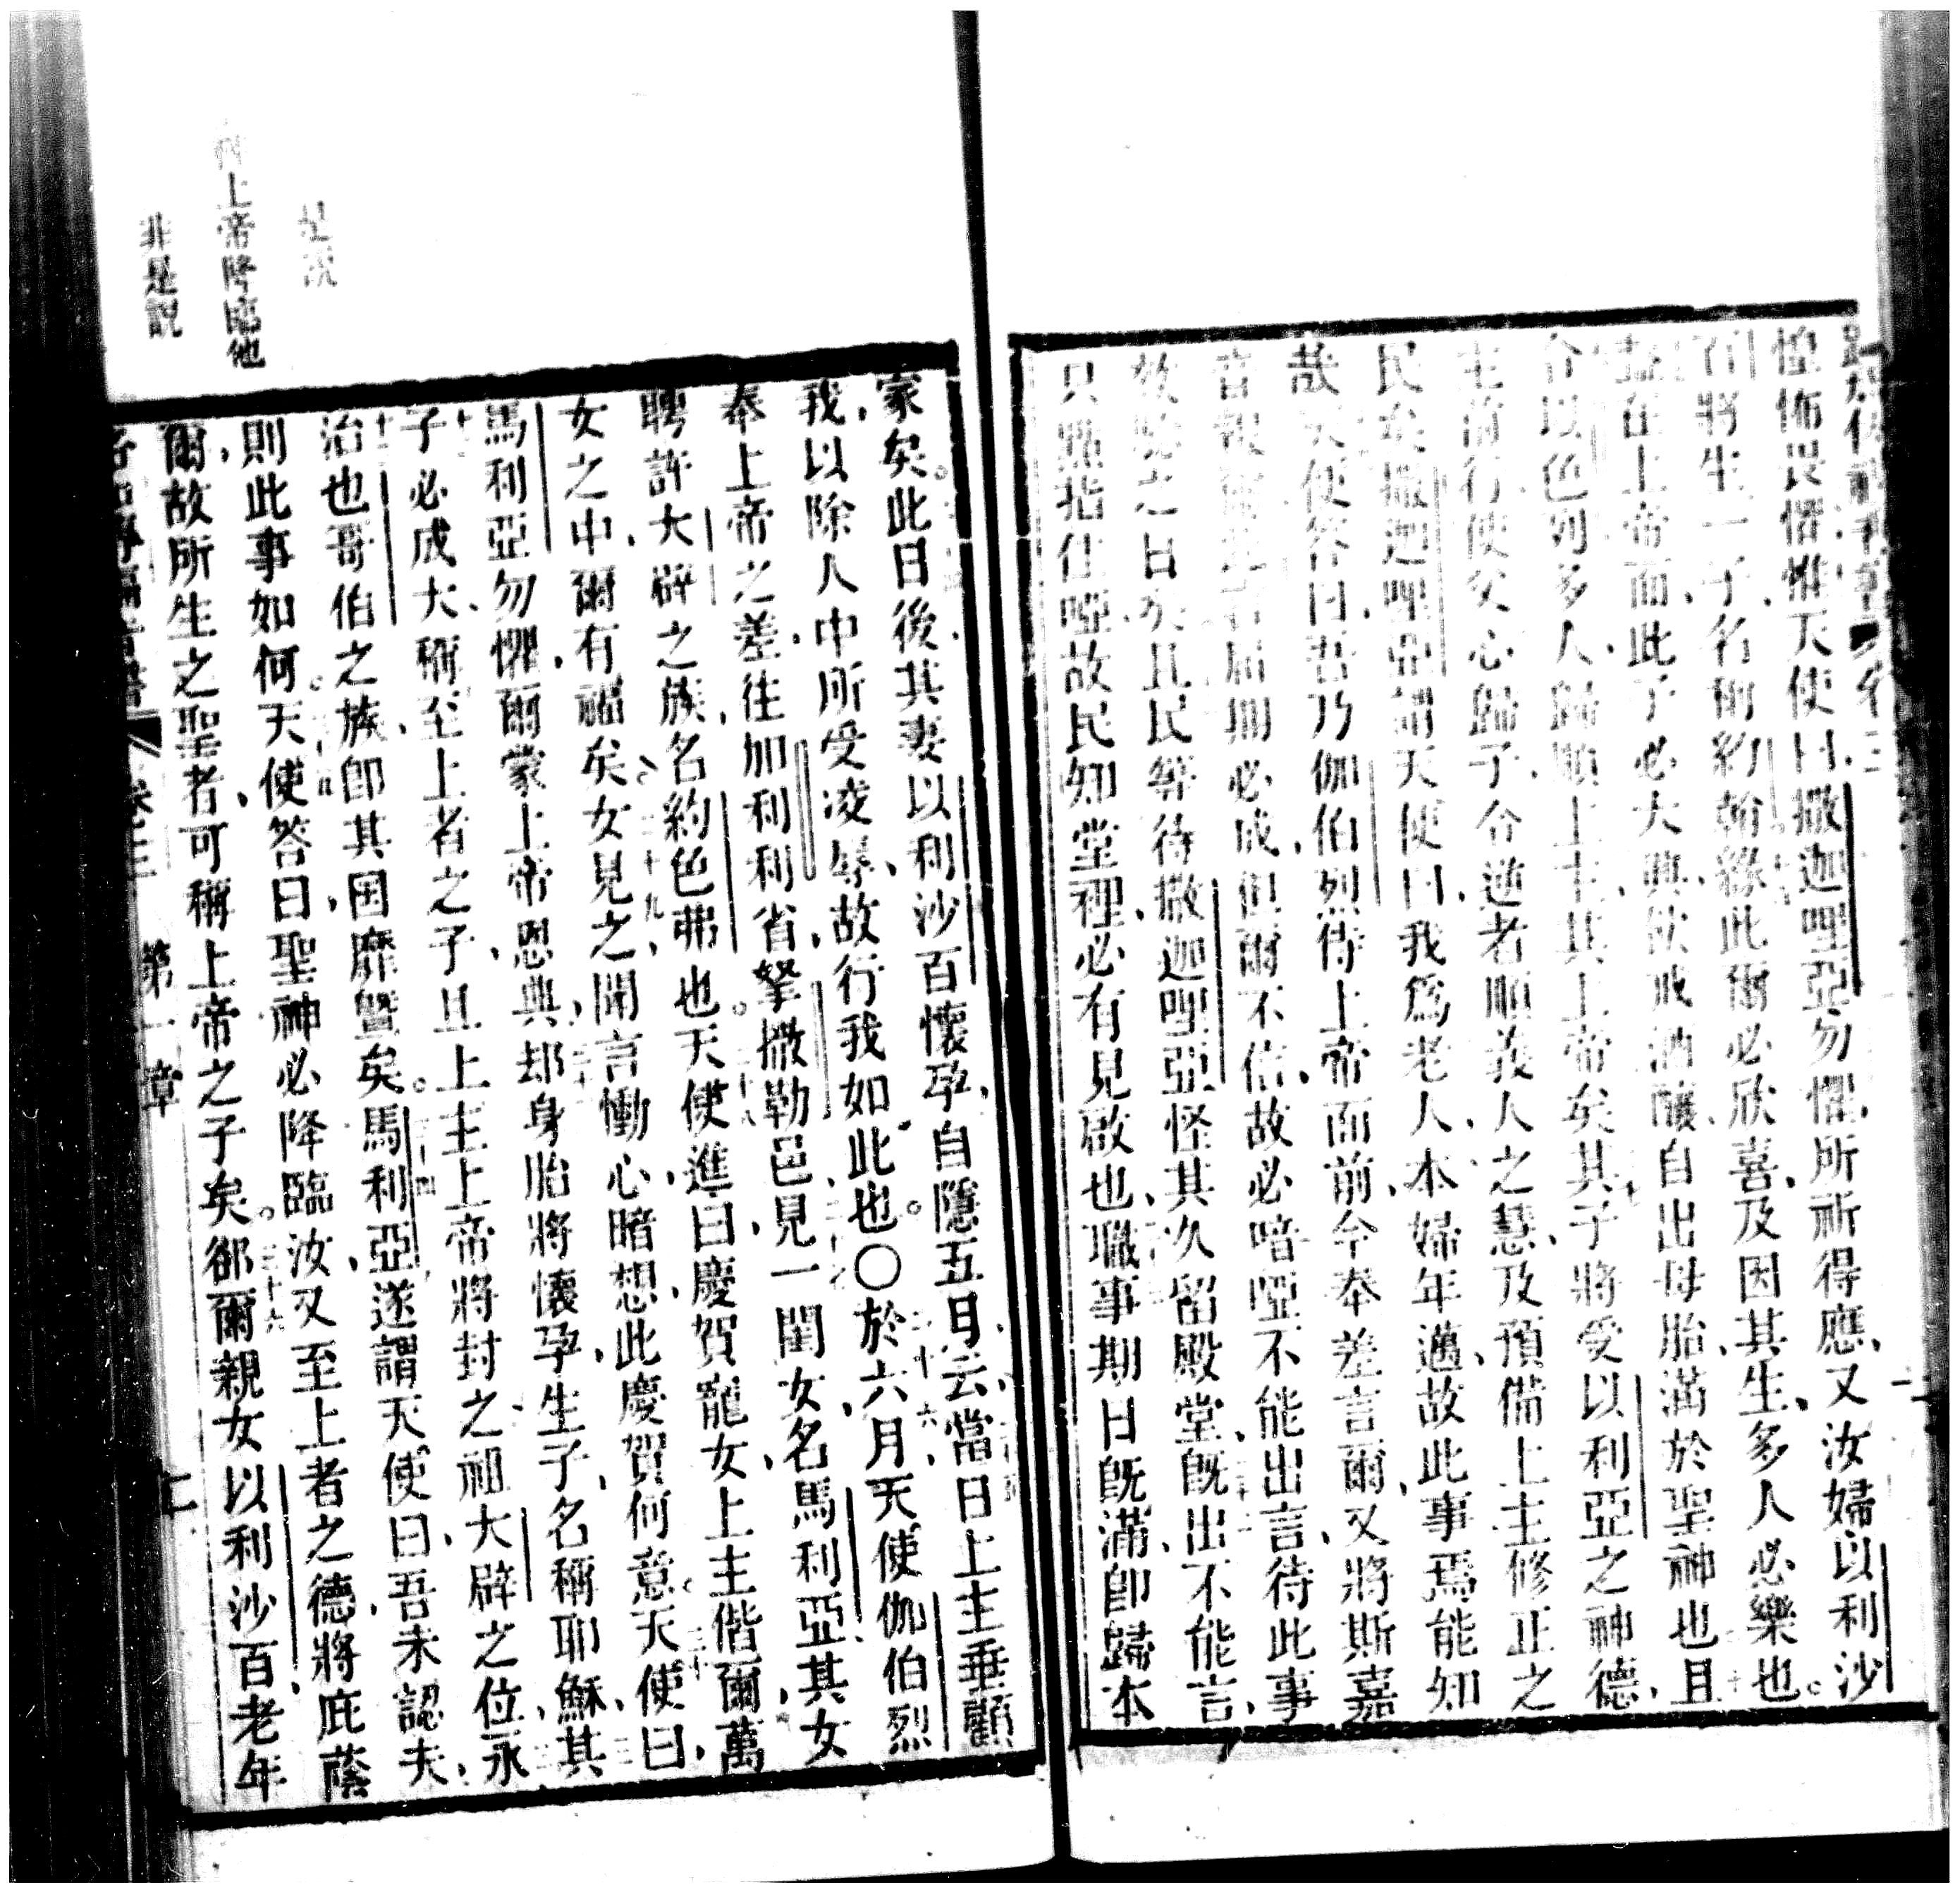 惶怖畏懼惟天使曰撒迦哩亞勿懼所祈得應又汝婦以利沙
百將生一子名稱約翰緣此爾必欣喜及因其生多人必樂也
蓋在上帝面此子必大與飲戒酒釀自出母胎滿於聖神也且
令以色列多人歸順上主其上帝矣其子將受以利亞之神德
主前行使父心歸子令逆者順義人之慧及預備上主修正之
民矣撒迦哩亞謂天使曰我為老人本婦年邁故此事焉能知
哉天使答曰吾乃伽伯列待上帝面前今奉差言爾又將斯嘉
音報爾此言屆期必成但爾不信故必喑啞不能出言待此事
效驗之日矣且民等待撒迦哩亞怪其久留殿堂旣出不能言
只點指仕啞故民知堂裡必有見啟也職事期日旣滿卽歸本
家矣此日後其妻以利沙百懷孕自隱五月云當日上主垂顧
我以除人中所受凌辱故行我如此也〇於六月天使伽伯烈
奉上帝之差往加利利省拏撒勒邑見一閨女名馬利亞其女
聘許大辟之族名約色弗也天使進曰慶賀寵女上主偕爾萬
女之中爾有福矣女見之聞言慟心暗想此慶賀何意天使曰
馬利亞勿懼爾蒙上帝恩典却身胎將懷孕生子名稱耶穌其
子必成大稱至上者之子且上主上帝將封之祖大辟之位永
治也哥伯之族卽其囯靡曁矣馬利亞遂謂天使曰吾未認夫
則此事如何天使答曰聖神必降臨汝又至上者之德將庇蔭
爾故所生之聖者可稱上帝之子矣郤爾親女以利沙百老年
卷三 第一章 二
是說
何上帝降臨他
非是說